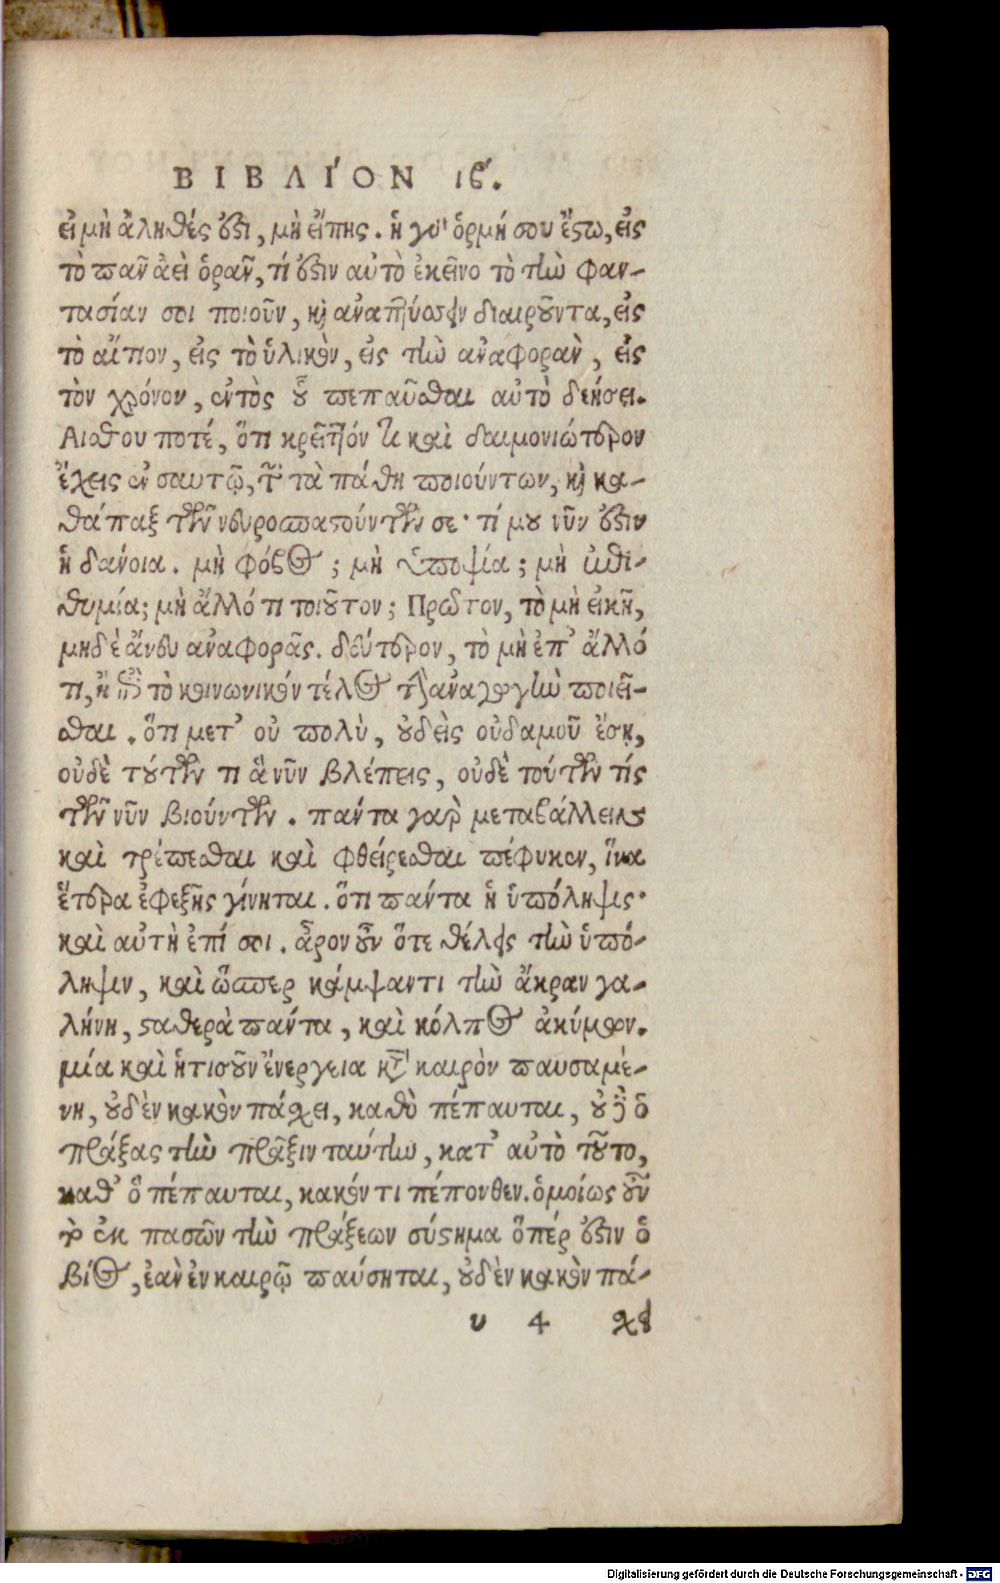 ΒΙΒΛΊΟΝ ιϐ΄.
εἰ μὴ ἀληθές ὅϛι, μὴ εἴπῃς. ἡ γὸ ὁρμή σου ἔϛω, εἰς
τὸ πᾶν ἀεὶ ὁρᾶν, τί ὅϛιν αὐτὸ ἐκεῖνο τὸ τὴν φαν-
τασίαν σοι ποιοῦν, κὶ ἀναπτύσσειν διαιροῦντα, εἰς
τὸ αἴτιον, εἰς τὸ ὑλικὸν, εἰς τὴν ἀναφορὰν, εἰς
τὸν χρόνον, ἐντὸς οὗ πεπαῦσθαι αὐτὸ δεήσει.
Αἰσθου ποτέ, ὅτι κρεῖττόν τι καὶ δαιμονιώτερον
ἔχεις ἐν σαυτῷ, τῶν τὰ πάθη ποιούντων, κὶ κα-
θάπαξ τῶν νευροσπαϛούντων σε· τί μου νῦν ὅϛιν
ἡ δάνοια. μὴ φόϐος; μὴ ὑποψία; μὴ ἐπι-
θυμία; μὴ ἄλλό τι τοιοῦτον; Πρῶτον, τὸ μὴ εἰκῆ,
μηδὲ ἄνευ ἀναφορᾶς. δεύτερον, τὸ μὴ ἐπ' ἄλλό
τι, ἢ ἐπὶ τὸ κοινωνικόν τέλος τὴν ἀναγωγὴν ποιεῖ-
σθαι. ὅτι μετ' οὐ πολὺ, οὐδεὶς οὐδαμοῦ ἔσῃ,
οὐδὲ τούτων τι ἃ νῦν βλέπεις, οὐδὲ τούτων τίς
τῶν νῦν βιούντων. πάντα γὰρ μεταϐάλλειν
καὶ τρέπεσθαι καὶ φθείρεσθαι πέφυκεν, ἵνα
ἕτερα ἐφεξῆς γίνηται. ὅτι πάντα ἡ ὑπόληψις·
καὶ αὐτὴ ἐπί σοι. ἆρον οὖν ὅτε θέλεις τὴν ὑπό-
ληψιν, καὶ ὥσπερ κάμψαντι τὴν ἄκραν γα-
λήνη, ϛαθερὰ πάντα, καὶ κόλπος ἀκύμων.
μία καὶ ἡτισοῦν ἐνέργεια κατὰ καιρὸν παυσαμέ-
νη, οὐδὲν κακὸν πάσχει, καθὸ πέπαυται, οὐδὲ ὁ
πράξας τὴν πρᾶξιν ταύτην, κατ' αὐτὸ τοῦτο,
καθ' ὃ πέπαυται, κακόν τι πέπονθεν. ὁμοίως οὖν
τὸ ἐκ πασῶν τῶν πράξεων σύϛημα ὅπέρ ὅϛιν ὁ
βίος, ἐὰν ἐν καιρῷ παύσηται, οὐδὲν κακὸν πά-
υ 4 χει
Digitalisierung gefördert durch die Deutsche Forschungsgemeinschaft - DFG